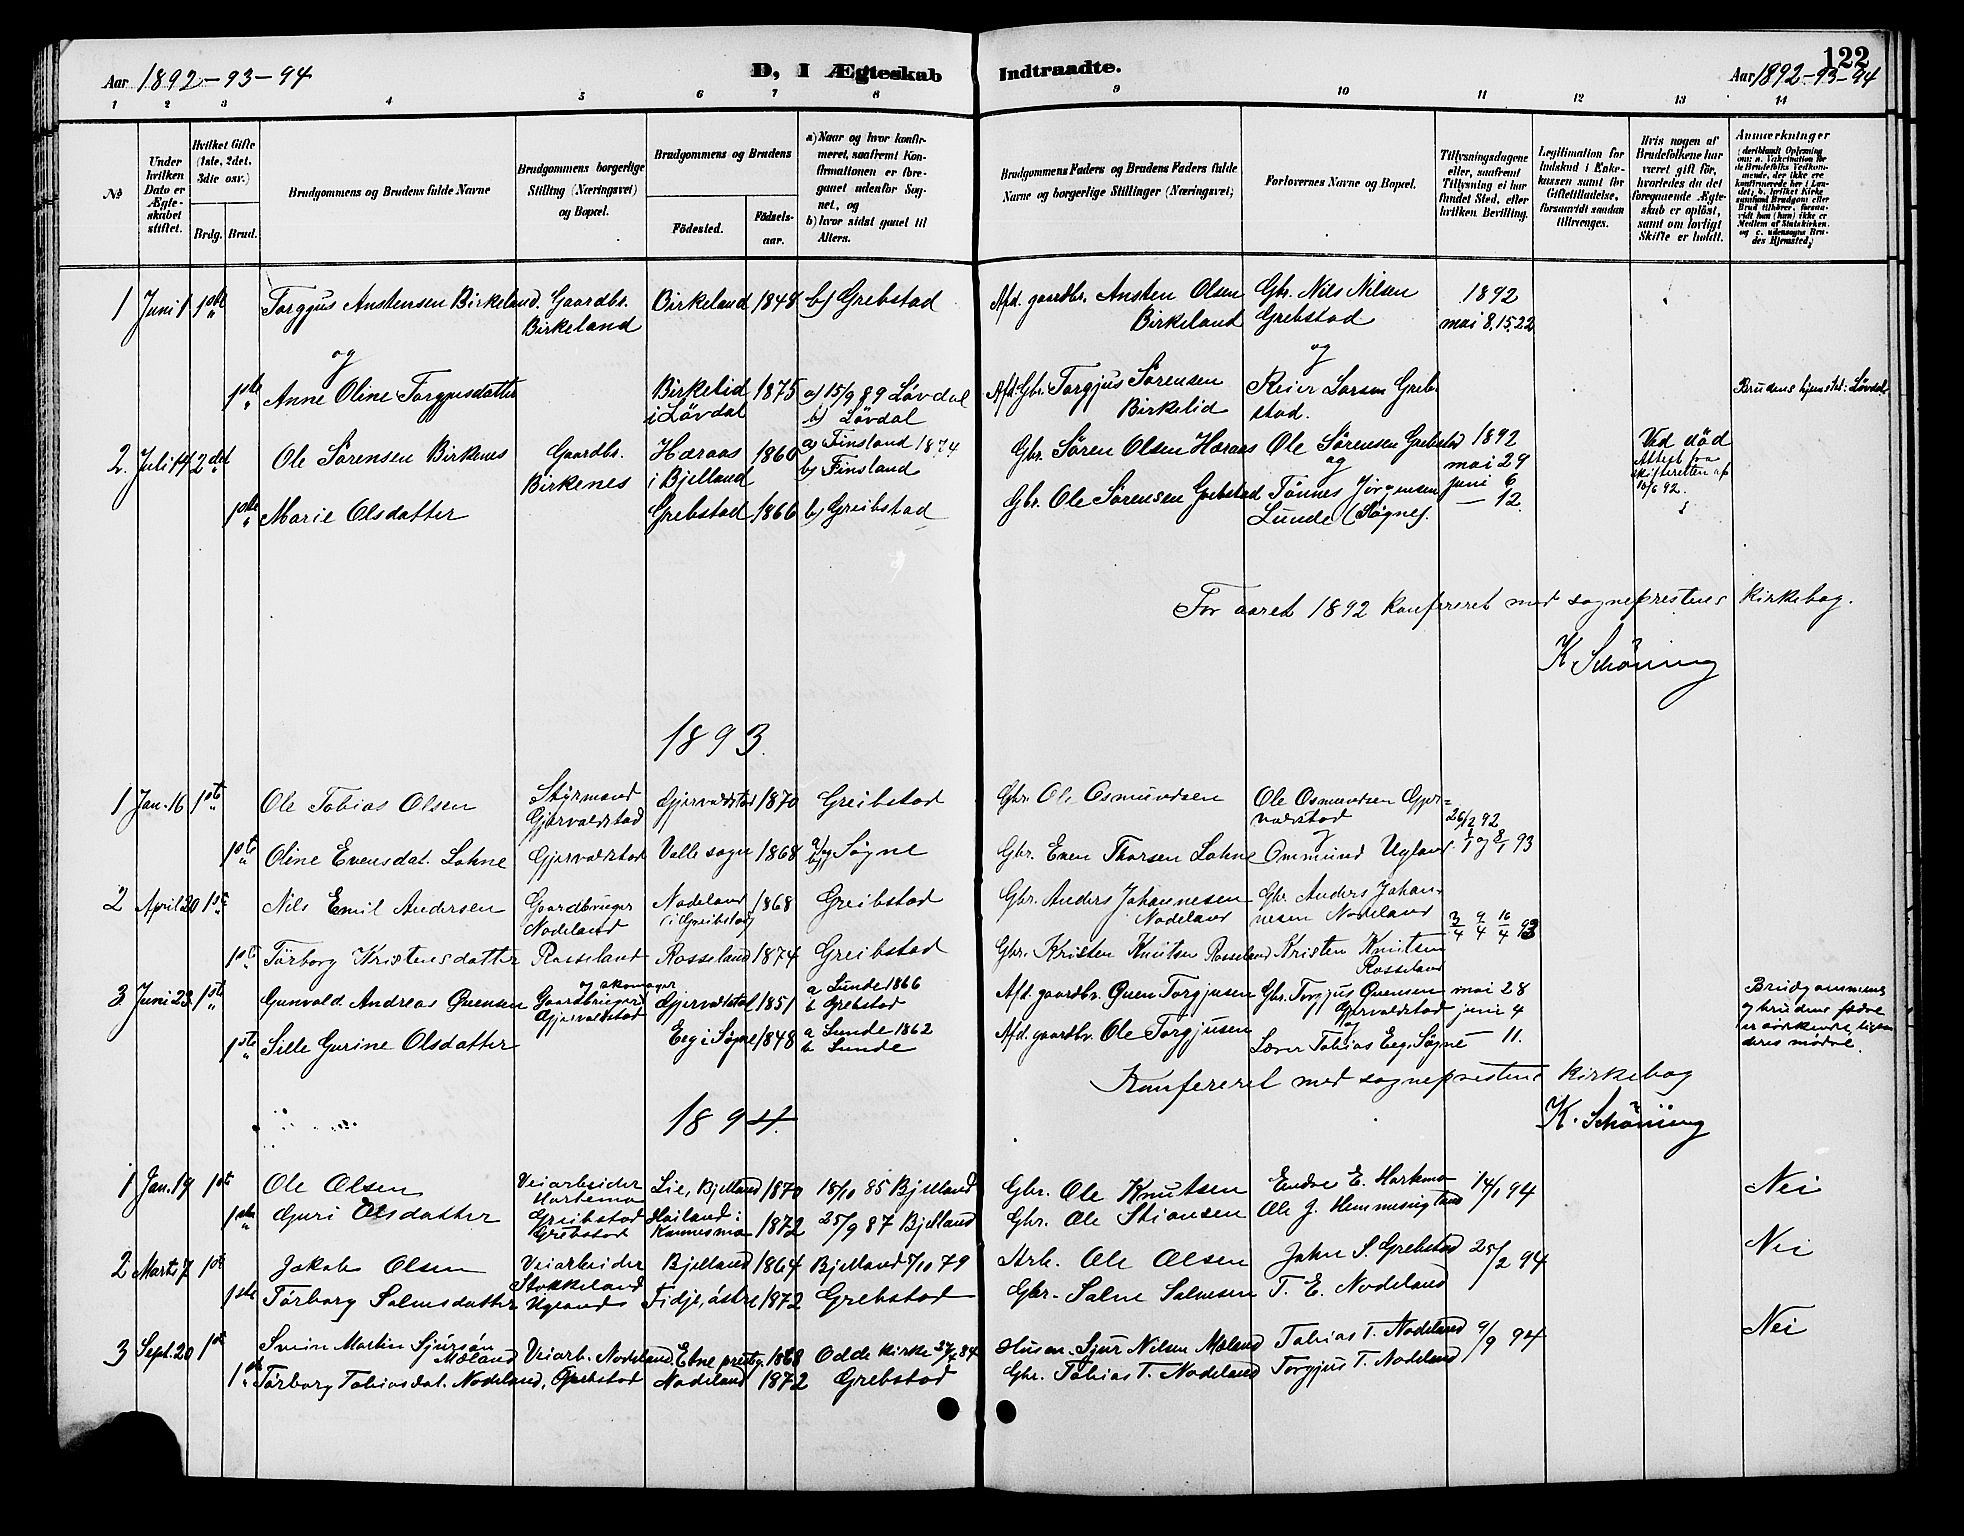 122
Aar 1892-93-94
D, I Ægteskab Indtraadte.
Aar 1892-93-94
1 2 3 4 5 6 7 8 9 10 11 12 13 14
No
Under hvilken Dato er Ægteskabet stiftet.
Hvilket Gifte (1ste, 2det, 3die osv.)
Brdg. Brud.
Brudgommens og Brudens fulde Navne
Brudgommens borgerlige Stilling (Næringsvei) og Bopæl.
Brudgommens og Brudens
Fødested.
Fødselsaar.
a) Naar og hvor konfirmeret, saafremt Konfirmationen er foreganet udenfor Sognet, og
b) hvor sidst ganet til Alters.
Brudgommens Faders og Brudens Faders fulde Navne og borgerlige Stillinger (Næringsvei)
Forlovernes Navne og Bopæl.
Tillysningsdagene eller, saafremt Tillysning ei har fundet Sted, efter hvilken Bevilling.
Legitimation for Indskud i Enkekassen samt for Giftetilladelse, forsaavidt saadan tiltrænges.
Hvis nogen af Brudefolkene har været gift før, hvorledes da det foregaaende Ægteskab er opløst, samt om lovligt Skifte er holdt.
Anmærkninger
1 Juni 1 1ste Torgjus Anstensen Birkeland. Gaardbr. Birkeland Birkeland 1848 b) Grebstad Afd. gaardbr. Ansten Olsen Birkeland Gbr. Nils Nilsen Grebstad 1892 mai 8.15.22
og og
1ste Anne Oline Torgjusdatter Birkelid i Løvdal 1875 a) 15/9 89 Løvdal b) Løvdal Afd. Gbr. Torgjus Sørensen Birkelid Reier Larsen Grebstad. Brudens hjemsted: Løvdal
2. Juli 14 2det Ole Sørensen Birkenes Gaardbr. Birkenes Haraas i Bjelland 1860 a) Finsland 1874 b) Finsland Gbr. Søren Olsen Haraas Ole Sørensen Grebstad og 1892 mai 29 juni 6 Ved død Attest fra skifteretten af 16/6 92.
1ste Marie Olsdatter Grebstad 1866 b) Greibstad Gbr. Ole Sørensen Grebstad Tønnes Jørgensen Lunde (Søgne). — 12.
For aaret 1892 konfereret med sogneprestens kirkebog.
K Schöning
1893.
1 Jan. 16 1ste Ole Tobias Olsen Styrmand Gjervaldstad Gjervaldstad 1870 Greibstad Gbr. Ole Osmundsen Ole Osmundsen Gjervaldstad 26/12 92
og
1ste Oline Evensdat. Lohne Gjervaldstad Valle sogn 1868 a) og b) Søgne Gbr. Even Thorsen Lohne Ommund Ugland 1/1 og 8/1 93
2 April 20 1ste Nils Emil Andersen Gaardbruger Nodeland Nodeland i Greibstad 1868 Greibstad Gbr. Anders Johannesen Nodeland Gbr. Anders Johannesen Nodeland 3/4 9/4 16/4 93
1ste Tørborg Kristensdatter Rosseland Rosseland 1874 Greibstad Gbr. Kristen Knutsen Rosseland Kristen Knutsen Rosseland
3 Juni 23. 1ste Gunvald Andreas Ovensen Gaardbruger og skomager Gjervaldstad Gjervaldstad 1851 a Lunde 1866 b Grebstad Afd. gaardbr. Oven Torgjusen Gbr. Torgjus Ovensen Gjervaldstad og mai 28 juni 4 Brudgommens og brudens fædre
1ste Sille Gurine Olsdatter Eeg i Søgne 1848 a Lunde 1862 b Lunde Afd. gaardbr. Ole Torgjusen Lærer Tobias Eeg, Søgne — 11.
Konfereret med sogneprestens kirkebog
K. Schöning
1894.
1 Jan. 19 1ste Ole Olsen Veiarbeider Hortemo Lie, Bjelland 1870 18/10 85 Bjelland Gbr. Ole Knutsen Endre E. Hortemo 14/1 94 Nei
1ste Guri Olsdatter Greibstad Grebstad Hoiland i 1872 25/9 87 Bjelland Gbr. Ole Stiansen Ole J. Hemmestad
2 Marts 7 1ste Jakob Olsen Veiarbeider Stokkeland Bjelland 1864 Bjelland 5/10 79 Arb. Ole Olsen John S. Grebstad 25/2 94 Nei
1ste Tørborg Salvesdatter Ugland Fidje, østre 1872 Grebstad Gbr. Salve Salvesen T. E. Nodeland
3 Sept. 20 1ste Svein Martin Sjursøn Mæland Veiarb. Nodeland Etne prestg. 1868 Odde kirke 27/4 84 Husm. Sjur Nilsen Mæland Tobias T. Nodeland 9/9 94 Nei
1ste Tørborg Tobiasdat. Nodeland, Grebstad Nodeland 1872 Grebstad Gbr. Tobias T. Nodeland Torgjus T. Nodeland